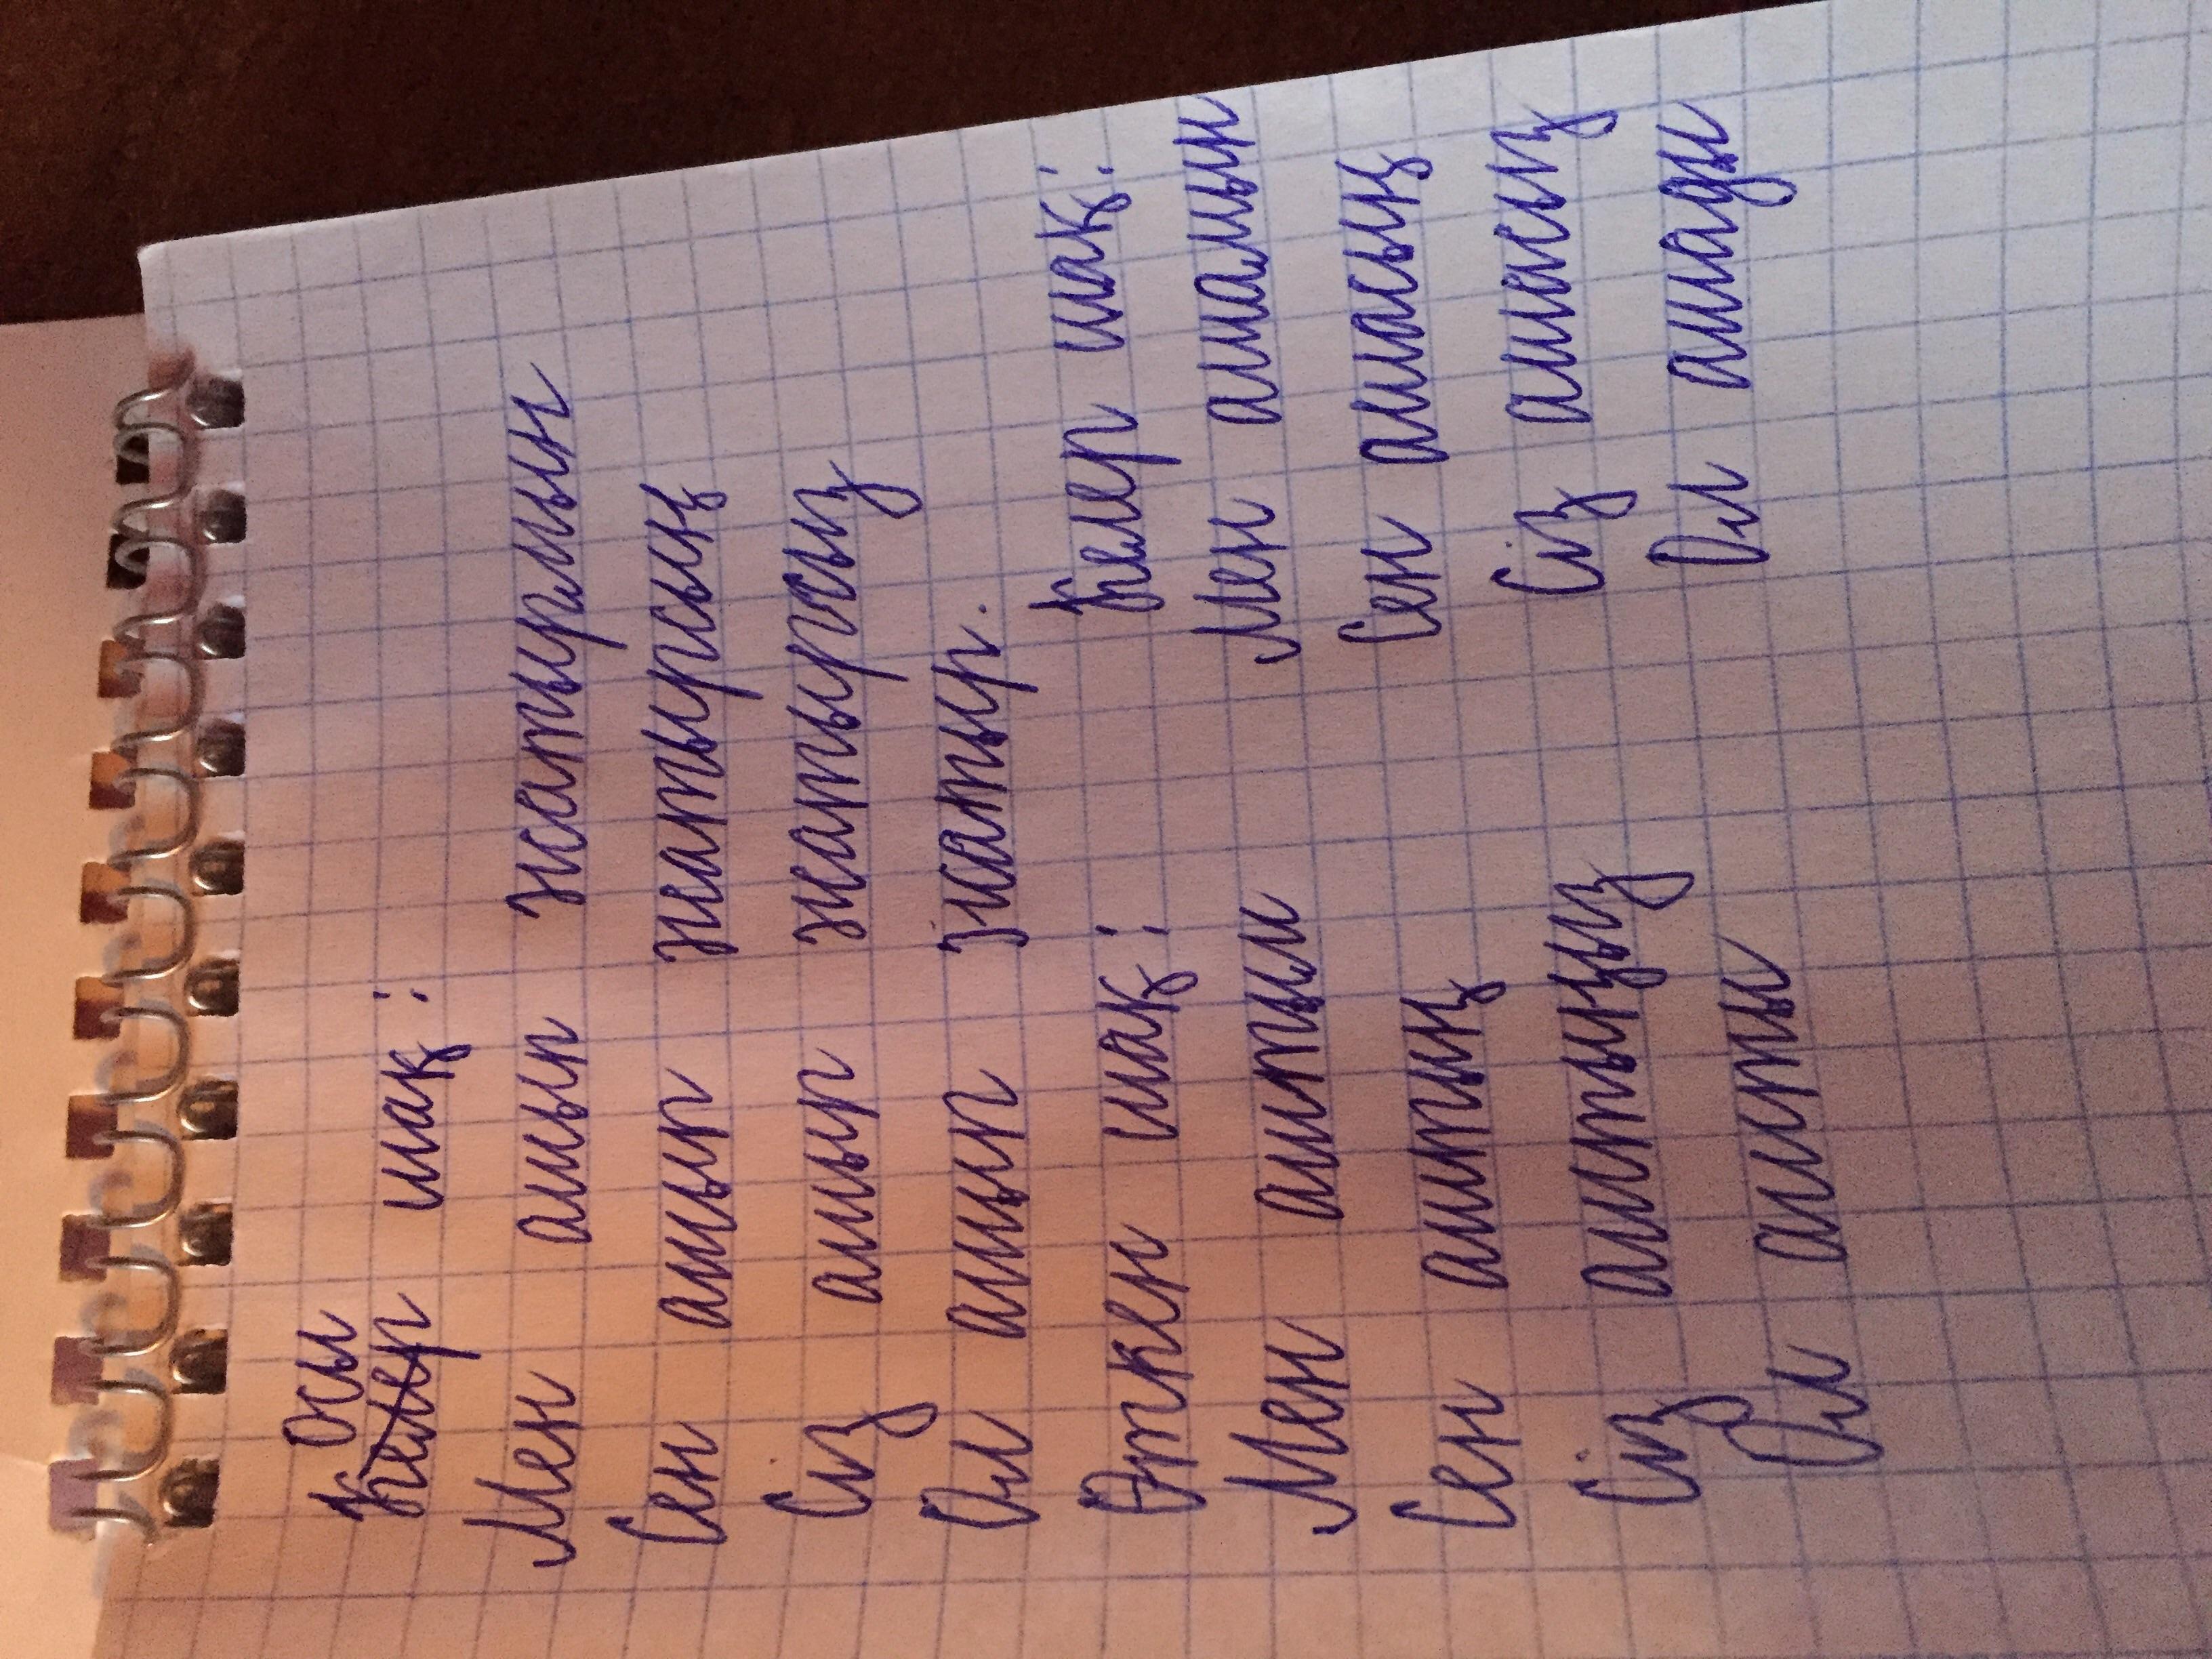 Осы
Келер шақ:
Мен ашып жатырмын
Сен ашып жатырсың
Сіз ашып жатырсыз
Ол ашып жатыр.
Өткен шақ:
Мен аштым
Сен аштың
Сіз аштыңыз
Ол ашты
Келер шақ:
Мен ашамын
Сен ашасың
Сіз ашасыз
Ол ашады